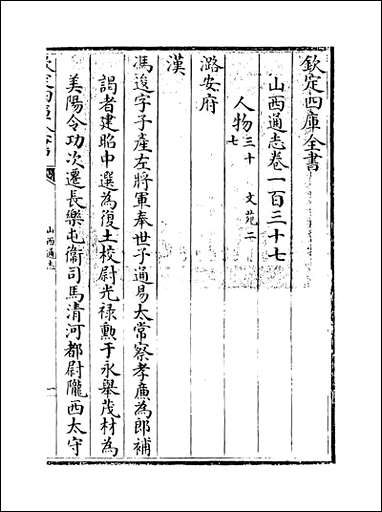 欽定四庫全書
山西通志卷一百三十七
人物三十七 文苑二
潞安府
漢
馮逡字子產左將軍奉世子通易太常察孝廉為郎補
謁者建昭中選為復土校尉光祿勲于永舉茂材為
美陽令功次遷長樂屯衛司馬清河都尉隴西太守
山西通志
一